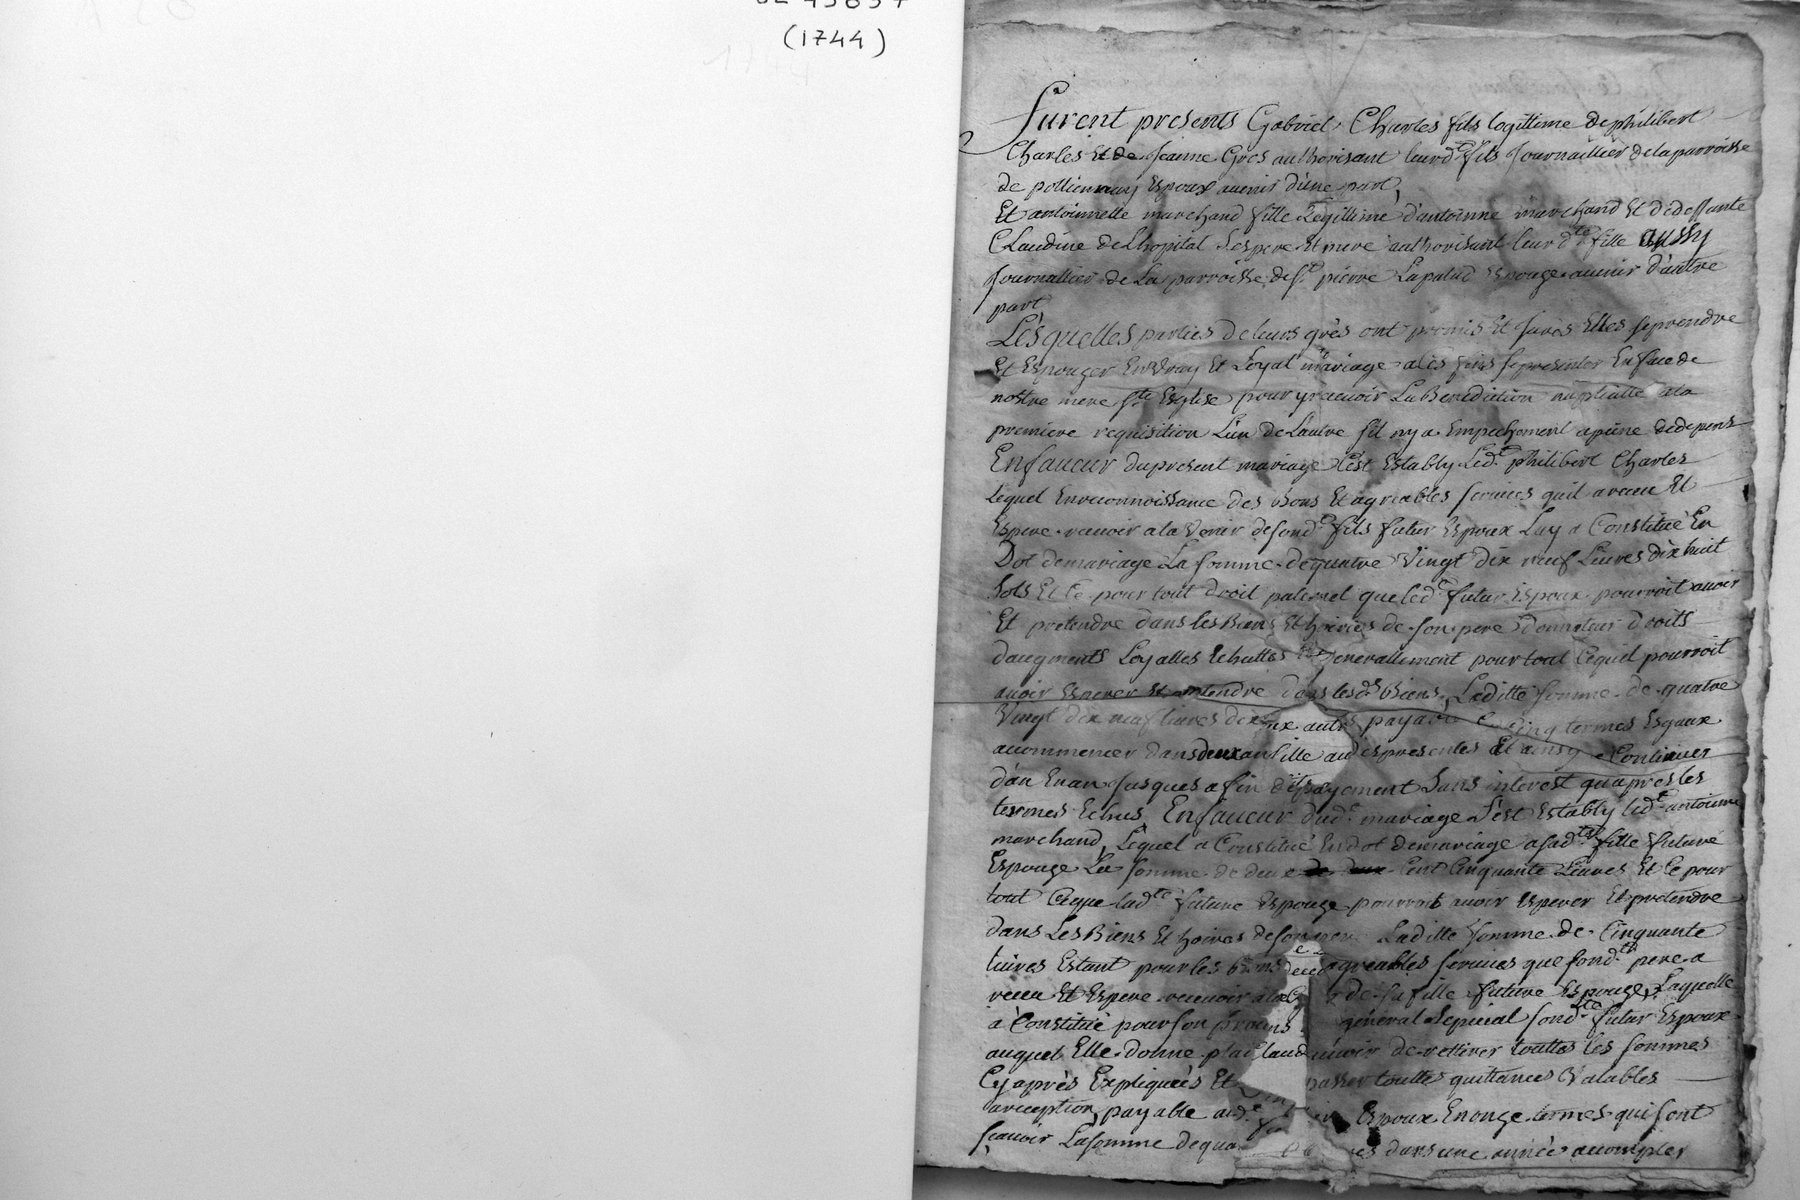 (1744)
furent presents Gabriel Charles fils legittime de philibert
Charles Et de Jeanne Gros authorisant leurd.t fils Journaillier de la parroisse
de pollienay Espoux avenir d'une part,
Et antoinnette marchand fille Legittime d'antoinne marchand Et de deffante
Claudine de Lhopital Ses pere Et mere authorisant leurd.te fille aussy
Journallier de La parroisse de S.t pierre Lapalud Espouze avenir d'autre
part
Lesquelles parties de leurs grès ont promis Et Jurés Elles se prendre
Et Espouzer En vray Et Loyal mariage a les fins se presenter En face de
nostre mere S.te Eglise pour y recevoir La Benediction nuptialle a la
premiere requisition L'un de Lautre s'il ny a Empechement a peine de depens
En faveur du present mariage s'est Estably Led.t philibert Charles
lequel En reconnoissance des bons Et agreables services quil a receu Et
Espere recevoir a la venir de sond.t fils futur Espoux Luy a Constitué En
Dot de mariage La somme de quatre Vingt dix neuf Livres dix huit
Sols Et Ce pour tout droit paternel que led.t futur Espoux pourroit avoir
Et pretendre dans les Biens Et hoiries de son pere droits
daugments Loyalles Echuttes Et Generallement pour tout Cequil pourroit
avoir Esperer Et pretendre dans lesd.s biens, Laditte somme de quatre
Vingt dix neuf livres payable cinq termes Egaux
a commencer dans deux an Et ainsy Continuer
d'an En an Jusques a fin de payement Sans interest quapres les
termes Echus, En faveur dud.t mariage S'est Estably led.t antoinne
marchand, Lequel a Constitué En dot de mariage a sad.te fille future
Espouze La somme de deux Cent Cinquante Livres Et Ce pour
tout Ceque lad.te future Espouze pourroit avoir Esperer Et pretendre
dans Les Biens Et hoiries de son pere Laditte somme de Cinquante
livres Estant pour les bons agreables services que sond.t pere a
receu Et Espere recevoir de sa fille future Espouze, Laquelle
a Constitué pour son general Special sond.t futur Espoux
auquel Elle donne de rettirer touttes les sommes
Cy après Expliquées Et passer touttes quittances Valables
acception, payable Espoux En onze termes qui sont
scavoir La somme de dans une année accomplie